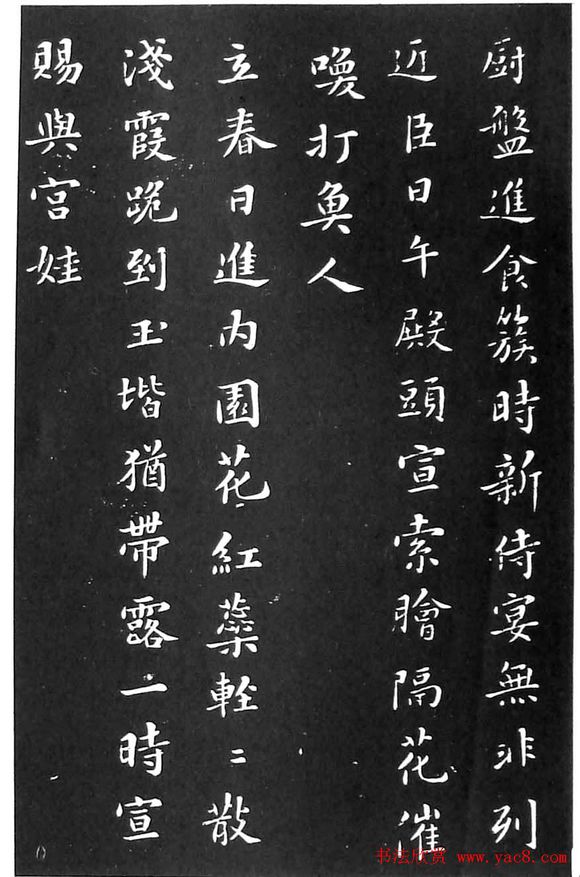 厨盤進食簇時新侍宴無非列
近臣日午殿頭宣索膾隔花催
喚打魚人
立春日進内園花紅蘂輕〻散
淺霞跪到玉堦猶帶露一時宣
賜與宮娃
书法欣赏 www.yac8.com